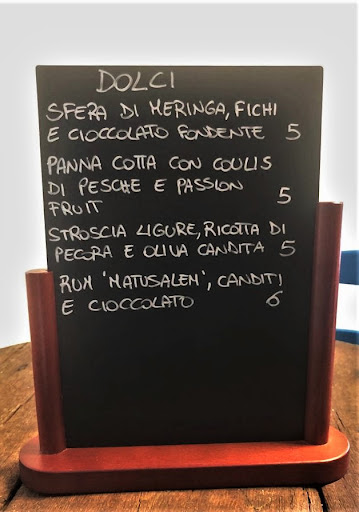 DOLCI
SFERA DI MERINGA, FICHI
E CIOCCOLATO FONDENTE 5
PANNA COTTA CON COULIS
DI PESCHE E PASSION
FRUIT 5
STROSCIA LIGURE, RICOTTA DI
PECORA E OLIVA CANDITA 5
RUM 'MATUSALEM', CANDITI
E CIOCCOLATO 6